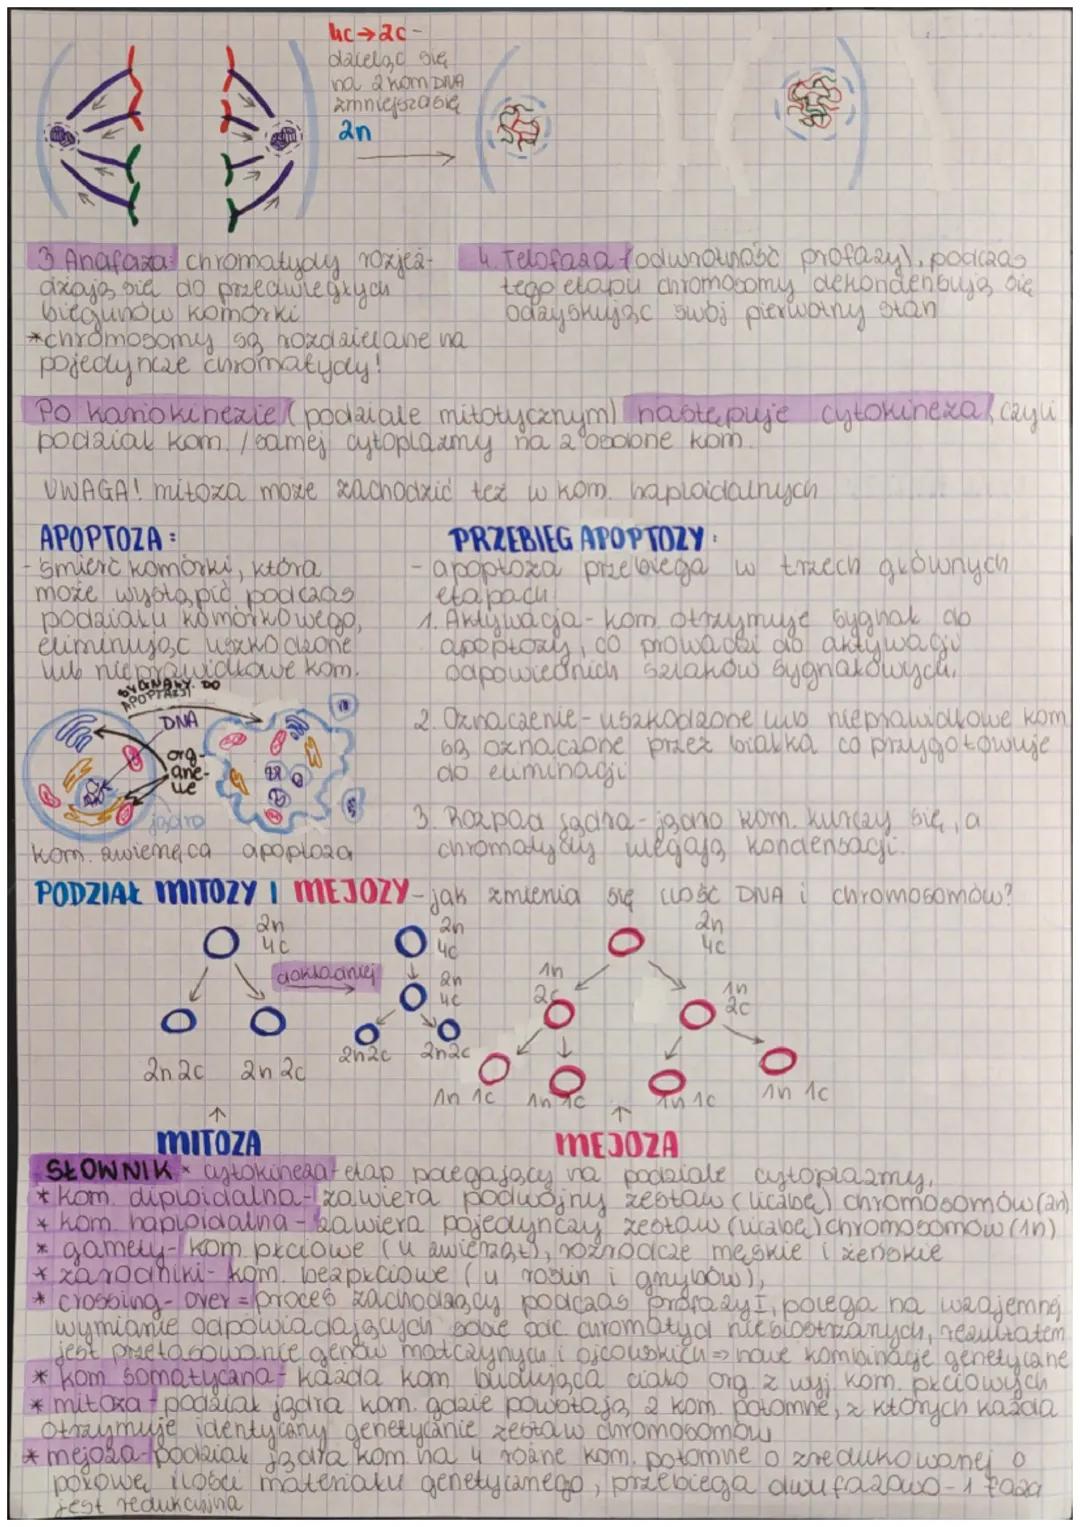 4c→2c-
dzieląc się
na 2 kom DNA
zmniejsza się
2n
3. Anafaza: chromatydy rozjeż-
dżają się do przeciwległych
biegunów komórki
*chromosomy są rozdzielane na
pojedyncze chromatydy!
4. Telofaza (odwrotność profazy), podczas
tego etapu chromosomy dekondensują się
odzyskując swój pierwotny stan
Po kariokinezie (podziale mitotycznym) następuje cytokineza, czyli
podział kom. /samej cytoplazmy na 2 osobne kom.
UWAGA! mitoza może zachodzić też w kom. haploidalnych
APOPTOZA:
- śmierć komórki, która
może wystąpić podczas
podziału komórkowego,
eliminując uszkodzone
lub nieprawidłowe kom.
SYGNAŁY DO
APOPTOZY
DNA
org-
ane-
lle
jądro
kom. zwierzęca apoptoza
PRZEBIEG APOPTOZY:
- apoptoza przebiega w trzech głównych
etapach
1. Aktywacja - kom. otrzymuje sygnał do
apoptozy, co prowadzi do aktywacji
odpowiednich szlaków sygnałowych.
2. Oznaczenie - uszkodzone lub nieprawidłowe kom
są oznaczone przez białka co przygotowuje
do eliminacji
3. Rozpad jądra - jądro kom. kurczy się, a
chromatydy ulegają kondensacji.
PODZIAŁ MITOZY I MEJOZY - jak zmienia się ilość DNA i chromosomów?
2n
4c
dokładniej
2n 2c 2n 2c
2n
4c
2n
4c
2n2c 2n2c
2n
4c
1n
2c
1n
2c
1n 1c 1n 1c 1n 1c 1n 1c
MITOZA
MEJOZA
SŁOWNIK * cytokineza - etap polegający na podziale cytoplazmy,
* kom. diploidalna - zawiera podwójny zestaw (liczbę) chromosomów (2n)
* kom. haploidalna - zawiera pojedynczy zestaw (liczbę) chromosomów (1n)
* gamety - kom. płciowe (u zwierząt), rozrodcze męskie i żeńskie
* zarodniki - kom. bezpłciowe (u roślin i grzybów),
* crossing-over = proces zachodzący podczas profazy I, polega na wzajemnej
wymianie odpowiadających sobie odc. chromatyd niesiostrzanych, rezultatem
jest przetasowanie genów matczynych i ojcowskich => nowe kombinacje genetyczne
* kom somatyczna - każda kom budująca ciało org z wyj. kom. płciowych
* mitoza - podział jądra kom. gdzie powstają 2 kom. potomne, z których każda
otrzymuje identyczny genetycznie zestaw chromosomów
* mejoza - podział jądra kom. na 4 różne kom. potomne o zredukowanej o
połowę ilości materiału genetycznego, przebiega dwufazowo - 1 faza
jest redukcyjna